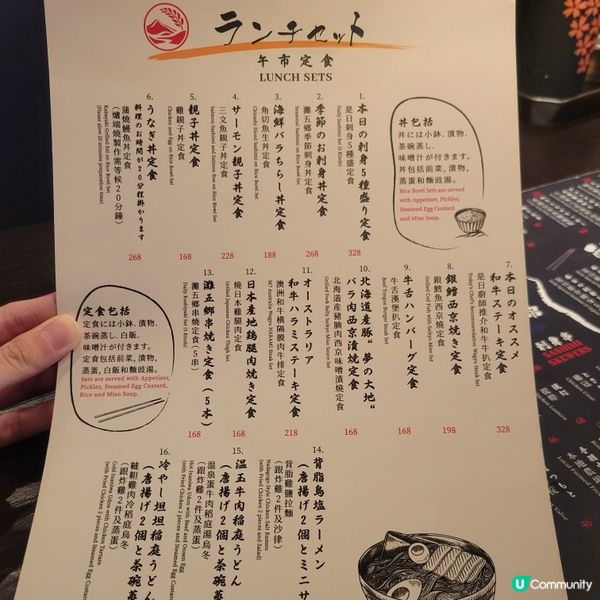 ランチセット
午市定食
LUNCH SETS
丼包括
丼には小鉢、漬物、
茶碗蒸し、
味噌汁が付きます。
丼包括前菜，漬物，
蒸蛋和麵豉湯。
Rice Bowl Sets are served
with Appetizer, Pickles,
Steamed Egg Custard
and Miso Soup.
1. 本日の刺身5種盛り定食
是日刺身5種盛定食
328
2. 季節のお刺身丼定食
灘五鄉季節刺身丼定食
268
3. 海鮮バラちらし丼定食
角切魚生丼定食
188
4. サーモン親子丼定食
三文魚親子丼定食
228
5. 親子丼定食
雞親子丼定食
Chicken and Egg on Rice Bowl Set
168
6. うなぎ丼定食
料理のお時間が20分程掛かります
蒲燒鰻魚丼定食
(爐端燒製作需等候20分鐘)
Kabayaki Grilled Eel on Rice Bowl Set
(Please allow 20 minutes preparation time)
268
7. 本日のオススメ
和牛ステーキ定食
是日廚師推介和牛牛扒定食
Today's Chef's Recommendation Wagyu Steak Set
328
8. 銀鱈西京焼き定食
銀鱈魚西京燒定食
Grilled Cod Fish with Saikyo Miso Set
198
9. 牛舌ハンバーグ定食
牛舌漢堡扒定食
Beef Tongue Burger Steak Set
168
10. 北海道産豚“夢の大地“
バラ肉西京漬焼定食
北海道産豬腩肉西京味噌漬燒定食
168
11. オーストラリア
和牛ハラミステーキ定食
澳洲和牛橫隔膜肉牛排定食
M7 Australia Wagyu HARAMI Steak Set
218
12. 日本産地鶏腿肉焼き定食
燒日本雞腿肉定食
Grilled Japanese Chicken Thigh Set
168
13. 灘五郷串焼き定食（5本）
灘五鄉串燒定食（5串）
Daily Kushiyaki Set (5 Skewers)
168
定食包括
定食には小鉢、漬物、
茶碗蒸し、白飯、
味噌汁が付きます。
定食包括前菜，漬物，
蒸蛋，白飯和麵豉湯。
Sets are served with Appetizer,
Pickles, Steamed Egg Custard,
Rice and Miso Soup.
14. 背脂鳥塩ラーメン
（唐揚げ2個とミニサ
背脂雞鹽拉麵
（跟炸雞2件及沙律）
(with Fried Chicken 2 pieces and Salad)
15. 温玉牛肉稲庭うどん
（唐揚げ2個と茶碗蒸
溫泉蛋牛肉稻庭湯烏冬
（跟炸雞2件及蒸蛋）
Hot Inaniwa Udon with Beef and Onsen Egg
(with Fried Chicken 2 pieces and Steamed Egg Custard
16. 冷やし坦坦稲庭うどん
（唐揚げ2個と茶碗蒸
（跟炸雞2件及蒸蛋）
(with Fried Chicken 2 pieces and Steamed Egg Custard
SASHIMI
SKEWERS
46
46
U Community